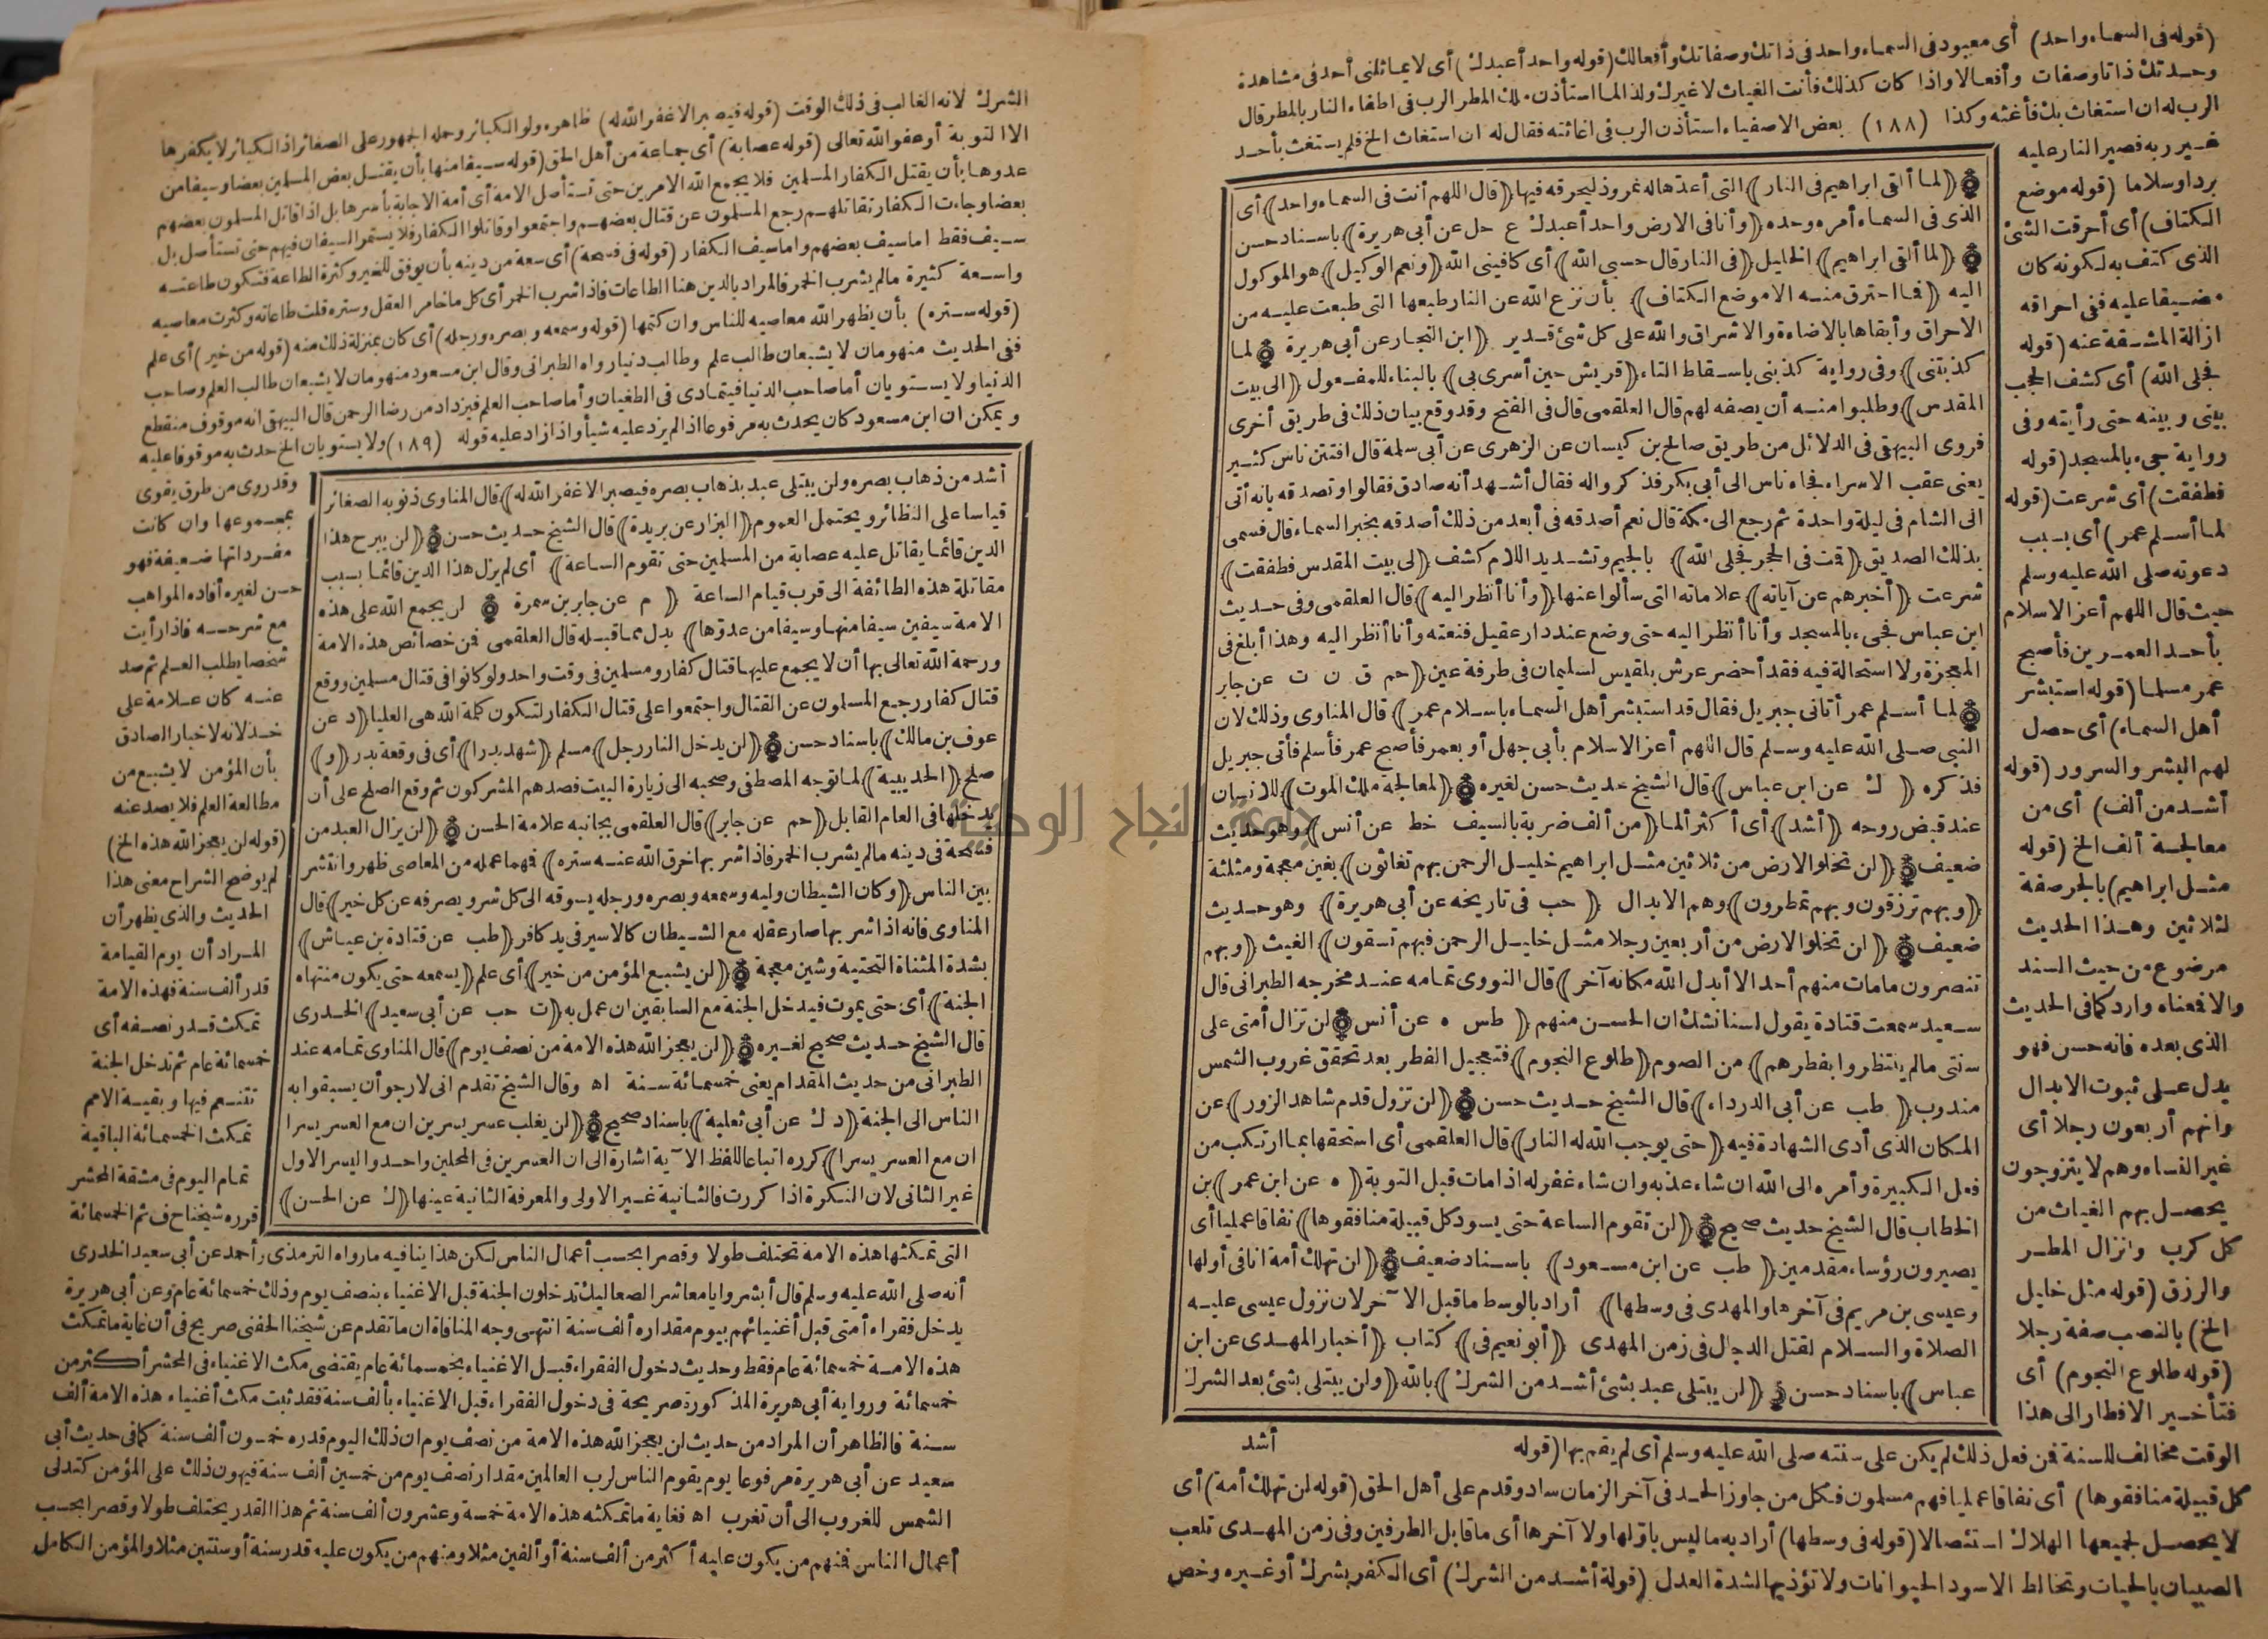 (قوله في السماء واحد) أي معبود في السماء واحد في ذاتك وصفاتك وأفعالك (قوله واحد أعبدك) أي لا يماثلني أحد في مشاهدة
وحدتك ذاتا وصفات وأفعالا واذا كان كذلك فأنت الغياث لا غيرك ولذا لما استأذن ملك المطر الرب في اطفاء النار بالمطر قال
الرب له ان استغاث بك فأغثه وكذا (١٨٨) بعض الاصفياء استأذن الرب في اغاثته فقال له ان استغاث الخ فلم يستغث بأحد
غير ربه فصير النار عليه
بردا وسلاما (قوله موضع
الكتاف) أي أحرقت الشئ
الذي كتف به لكونه كان
مضيقا عليه ففي احراقه
ازالة المشقة عنه (قوله
فجلى الله) أي كشف الحجب
بيني وبينه حتى رأيته وفي
رواية جيء بالمسجد (قوله
فطفقت) أي شرعت (قوله
لما أسلم عمر) أي بسبب
دعوته صلى الله عليه وسلم
حيث قال اللهم أعز الاسلام
بأحد العمرين فأصبح
عمر مسلما (قوله استبشر
أهل السماء) أي حصل
لهم البشر والسرور (قوله
أشد من ألف) أي من
معالجة ألف الخ (قوله
مثل ابراهيم) بالجر صفة
لثلاثين وهذا الحديث
موضوع من حيث السند
والا فمعناه وارد كما في الحديث
الذي بعده فانه حسن فهو
يدل على ثبوت الابدال
وانهم أربعون رجلا أي
غير النساء وهم لا يتزوجون
يحصل بهم الغياث من
كل كرب وانزال المطر
والرزق (قوله مثل خليل
الخ) بالنصب صفة رجلا
(قوله طلوع النجوم) أي
فتأخير الافطار الى هذا
﴿لما ألقي ابراهيم في النار﴾ التي أعدها له نمروذ ليحرقه فيها ﴿قال اللهم أنت في السماء واحد﴾ أي
الذي في السماء أمره وحده ﴿وأنا في الارض واحد أعبدك ع حل عن أبي هريرة﴾ باسناد حسن
﴿لما ألقي ابراهيم﴾ الخليل ﴿في النار قال حسبي الله﴾ أي كافيني الله ﴿ونعم الوكيل﴾ هو الموكول
اليه ﴿فما احترق منه الا موضع الكتاف﴾ بأن نزع الله عن النار طبعها التي طبعت عليه من
الاحراق وأبقاها بالاضاءة والاشراق والله على كل شئ قدير ﴿ابن النجار عن أبي هريرة لما
كذبتني﴾ وفي رواية كذبني باسقاط التاء ﴿قريش حين أسري بي﴾ بالبناء للمفعول ﴿الى بيت
المقدس﴾ وطلبوا منه أن يصفه لهم قال العلقمي قال في الفتح وقد وقع بيان ذلك في طريق أخرى
فروى البيهقي في الدلائل من طريق صالح بن كيسان عن الزهري عن أبي سلمة قال افتتن ناس كثير
يعني عقب الاسراء فجاء ناس الى أبي بكر فذكروا له فقال أشهد أنه صادق فقالوا وتصدقه بانه أتى
الى الشام في ليلة واحدة ثم رجع الى مكة قال نعم أصدقه في أبعد من ذلك أصدقه بخبر السماء قال فسمى
بذلك الصديق ﴿قمت في الحجر فجلى الله﴾ بالجيم وتشديد اللام كشف ﴿لي بيت المقدس فطفقت﴾
شرعت ﴿أخبرهم عن آياته﴾ علاماته التي سألوا عنها ﴿وأنا أنظر اليه﴾ قال العلقمي وفي حديث
ابن عباس فجيء بالمسجد وأنا أنظر اليه حتى وضع عند دار عقيل فنعته وأنا أنظر اليه وهذا أبلغ في
المعجزة ولا استحالة فيه فقد أحضر عرش بلقيس لسليمان في طرفة عين ﴿حم ق ن ت عن جابر
﴿لما أسلم عمر أتاني جبريل فقال قد استبشر أهل السماء باسلام عمر﴾ قال المناوي وذلك لان
النبي صلى الله عليه وسلم قال اللهم أعز الاسلام بأبي جهل أو بعمر فأصبح عمر فأسلم فأتى جبريل
فذكره ﴿ك عن ابن عباس﴾ قال الشيخ حديث حسن لغيره ﴿لمعالجة ملك الموت﴾ للانسان
عند قبض روحه ﴿أشد﴾ أي أكثر ألما ﴿من ألف ضربة بالسيف خط عن أنس﴾ وهو حديث
ضعيف ﴿لن تخلو الارض من ثلاثين مثل ابراهيم خليل الرحمن بهم تغاثون﴾ بغين معجمة ومثلثة
﴿وبهم ترزقون وبهم تمطرون﴾ وهم الابدال ﴿حب في تاريخه عن أبي هريرة﴾ وهو حديث
ضعيف ﴿لن تخلو الارض من أربعين رجلا مثل خليل الرحمن فبهم تسقون﴾ الغيث ﴿وبهم
تنصرون ما مات منهم أحد الا أبدل الله مكانه آخر﴾ قال النووي تمامه عند مخرجه الطبراني قال
سعيد سمعت قتادة يقول لسنا نشك ان الحسن منهم ﴿طس ه عن أنس لن تزال أمتي على
سنتي مالم ينتظروا بفطرهم﴾ من الصوم ﴿طلوع النجوم﴾ فتعجيل الفطر بعد تحقق غروب الشمس
مندوب ﴿طب عن أبي الدرداء﴾ قال الشيخ حديث حسن ﴿لن تزول قدم شاهد الزور﴾ عن
المكان الذي أدى الشهادة فيه ﴿حتى يوجب الله له النار﴾ قال العلقمي أي استحقها بما ارتكب من
فعل الكبيرة وأمره الى الله ان شاء عذبه وان شاء غفر له اذا مات قبل التوبة ﴿ه عن ابن عمر﴾ بن
الخطاب قال الشيخ حديث صحيح ﴿لن تقوم الساعة حتى يسود كل قبيلة منافقوها﴾ نفاقا عمليا أي
يصيرون رؤساء مقدمين ﴿طب عن ابن مسعود﴾ باسناد ضعيف ﴿لن تهلك أمة انا في أولها
وعيسى بن مريم في آخرها والمهدي في وسطها﴾ أراد بالوسط ما قبل الآخر لان نزول عيسى عليه
الصلاة والسلام لقتل الدجال في زمن المهدي ﴿أبو نعيم في﴾ كتاب ﴿أخبار المهدي عن ابن
عباس﴾ باسناد حسن ﴿لن يبتلى عبد بشئ أشد من الشرك﴾ بالله ﴿ولن يبتلى بشئ بعد الشرك
الوقت مخالف للسنة فمن فعل ذلك لم يكن على سنته صلى الله عليه وسلم أي لم يقم بها (قوله
أشد
كل قبيلة منافقوها) أي نفاقا عمليا فهم مسلمون فكل من جاوز الحد في آخر الزمان ساد وقدم على أهل الحق (قوله لن تهلك أمة) أي
لا يحصل لجميعها الهلاك استئصالا (قوله في وسطها) أراد به ما ليس باولها ولا آخرها أي ما قابل الطرفين وفي زمن المهدي تلعب
الصبيان بالحيات وتخالط الاسود الحيوانات ولا تؤذيها لشدة العدل (قوله أشد من الشرك) أي الكفر بشرك أو غيره وخص
الشرك لانه الغالب في ذلك الوقت (قوله فيصبر الا غفر الله له) ظاهره ولو الكبائر وحمله الجمهور على الصغائر اذ الكبائر لا يكفرها
الا التوبة أو عفو الله تعالى (قوله عصابة) أي جماعة من أهل الحق (قوله سيفا منها بأن يقتل بعض المسلمين بعضا وسيفا من
عدوها بأن يقتل الكفار المسلمين فلا يجمع الله الامرين حتى تستأصل الامة أي أمة الاجابة بأسرها بل اذا قاتل المسلمون بعضهم
بعضا وجاءت الكفار تقاتلهم رجع المسلمون عن قتال بعضهم واجتمعوا وقاتلوا الكفار فلا يستمر السيفان فيهم حتى تستأصل بل
سيف فقط اما سيف بعضهم واما سيف الكفار (قوله في فسحة) أي سعة من دينه بأن يوفق للخير وكثرة الطاعة فتكون طاعته
واسعة كثيرة مالم يشرب الخمر فالمراد بالدين هنا الطاعات فاذا شرب الخمر أي كل ما خامر العقل وستره قلت طاعاته وكثرت معاصيه
(قوله ستره) بأن يظهر الله معاصيه للناس وان كتمها (قوله وسمعه وبصره ورجله) أي كان بمنزلة ذلك منه (قوله من خير) أي علم
ففي الحديث منهومان لا يشبعان طالب علم وطالب دنيا رواه الطبراني وقال ابن مسعود منهومان لا يشبعان طالب العلم وصاحب
الدنيا ولا يستويان أما صاحب الدنيا فيتمادى في الطغيان وأما صاحب العلم فيزداد من رضا الرحمن قال البيهقي انه موقوف منقطع
ويمكن ان ابن مسعود كان يحدث به مرفوعا اذا لم يزد عليه شيأ واذا زاد عليه قوله (١٨٩) ولا يستويان الخ حدث به موقوفا عليه
وقد روى من طرق يقوى
بمجموعها وان كانت
مفرداتها ضعيفة فهو
حسن لغيره أفاده المواهب
مع شرحه فاذا رأيت
شخصا يطلب العلم ثم صد
عنه كان علامة على
خذلانه لاخبار الصادق
بأن المؤمن لا يشبع من
مطالعة العلم فلا يصد عنه
(قوله لن يعجز الله هذه الخ)
لم يوضح الشراح معنى هذا
الحديث والذي يظهر أن
المراد أن يوم القيامة
قدر ألف سنة فهذه الامة
تمكث قدر نصفه أي
خمسمائة عام ثم تدخل الجنة
تتنعم فيها وبقية الامم
تمكث الخمسمائة الباقية
تمام اليوم في مشقة المحشر
قرره شيخنا ح ف ثم الخمسمائة
أشد من ذهاب بصره ولن يبتلى عبد بذهاب بصره فيصبر الا غفر الله له﴾ قال المناوي ذنوبه الصغائر
قياسا على النظائر ويحتمل العموم ﴿البزار عن بريدة﴾ قال الشيخ حديث حسن ﴿لن يبرح هذا
الدين قائما يقاتل عليه عصابة من المسلمين حتى تقوم الساعة﴾ أي لم يزل هذا الدين قائما بسبب
مقاتلة هذه الطائفة الى قرب قيام الساعة ﴿م عن جابر بن سمرة لن يجمع الله على هذه
الامة سيفين سيفا منها وسيفا من عدوها﴾ بدل مما قبله قال العلقمي فمن خصائص هذه الامة
ورحمة الله تعالى بها أن لا يجمع عليها قتال كفار ومسلمين في وقت واحد ولو كانوا في قتال مسلمين ووقع
قتال كفار رجع المسلمون عن القتال واجتمعوا على قتال الكفار لتكون كلمة الله هي العليا ﴿د عن
عوف بن مالك﴾ باسناد حسن ﴿لن يدخل النار رجل﴾ مسلم ﴿شهد بدرا﴾ أي في وقعة بدر ﴿و﴾
صلح ﴿الحديبية﴾ لما توجه المصطفى وصحبه الى زيارة البيت فصدهم المشركون ثم وقع الصلح على أن
يدخلها في العام القابل ﴿حم عن جابر﴾ قال العلقمي بجانبه علامة الحسن ﴿لن يزال العبد من
فسحة في دينه مالم يشرب الخمر فاذا شربها خرق الله عنه ستره﴾ فمهما عمله من المعاصي ظهر وانتشر
بين الناس ﴿وكان الشيطان وليه وسمعه وبصره ورجله يسوقه الى كل شر ويصرفه عن كل خير﴾ قال
المناوي فانه اذا شربها صار عقله مع الشيطان كالاسير في يد كافر ﴿طب عن قتادة بن عياش﴾
بشدة المثناة التحتية وشين معجمة ﴿لن يشبع المؤمن من خير﴾ أي علم ﴿يسمعه حتى يكون منتهاه
الجنة﴾ أي حتى يموت فيدخل الجنة مع السابقين ان عمل به ﴿ت حب عن أبي سعيد﴾ الخدري
قال الشيخ حديث صحيح لغيره ﴿لن يعجز الله هذه الامة من نصف يوم﴾ قال المناوي تمامه عند
الطبراني من حديث المقدام يعني خمسمائة سنة اه وقال الشيخ تقدم اني لارجو أن يسبقوا به
الناس الى الجنة ﴿د ك عن أبي ثعلبة﴾ باسناد صحيح ﴿لن يغلب عسر يسرين ان مع العسر يسرا
ان مع العسر يسرا﴾ كرره اتباعا للفظ الآية اشارة الى ان العسرين في المحلين واحد واليسر الاول
غير الثاني لان النكرة اذا كررت فالثانية غير الاولى والمعرفة الثانية عينها ﴿ك عن الحسن﴾
التي تمكثها هذه الامة تختلف طولا وقصرا بحسب أعمال الناس لكن هذا ينافيه ما رواه الترمذي وأحمد عن أبي سعيد الخدري
أنه صلى الله عليه وسلم قال أبشروا يا معاشر الصعاليك تدخلون الجنة قبل الاغنياء بنصف يوم وذلك خمسمائة عام وعن أبي هريرة
يدخل فقراء أمتي قبل أغنيائهم بيوم مقداره ألف سنة انتهى وجه المنافاة ان ما تقدم عن شيخنا الحفني صريح في أن غاية ما تمكث
هذه الامة خمسمائة عام فقط وحديث دخول الفقراء قبل الاغنياء بخمسمائة عام يقتضي مكث الاغنياء في المحشر أكثر من
خمسمائة ورواية أبي هريرة المذكورة صريحة في دخول الفقراء قبل الاغنياء بألف سنة فقد ثبت مكث أغنياء هذه الامة ألف
سنة فالظاهر أن المراد من حديث لن يعجز الله هذه الامة من نصف يوم ان ذلك اليوم قدره خمسون ألف سنة كما في حديث أبي
سعيد عن أبي هريرة مرفوعا يوم يقوم الناس لرب العالمين مقدار نصف يوم من خمسين ألف سنة فيهون ذلك على المؤمن كتدلى
الشمس للغروب الى أن تغرب اه فغاية ما تمكثه هذه الامة خمسة وعشرون ألف سنة ثم هذا القدر يختلف طولا وقصرا بحسب
أعمال الناس فمنهم من يكون عليه أكثر من ألف سنة أو ألفين مثلا ومنهم من يكون عليه قدر سنة أو سنتين مثلا والمؤمن الكامل
جامعة النجاح الوطنية